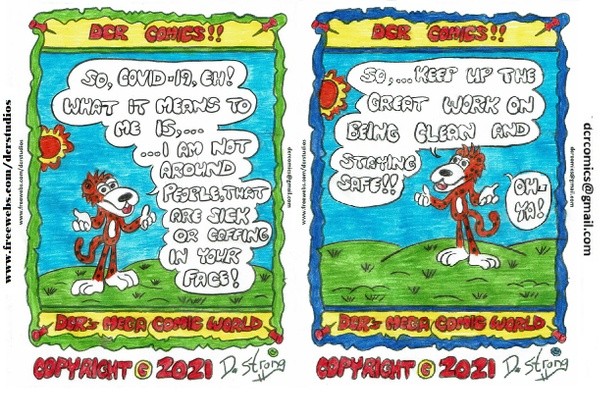 DCR COMICS!!
SO, COVID-19, EH!
WHAT IT MEANS TO
ME IS,...
...I AM NOT
AROUND
PEOPLE, THAT
ARE SICK
OR COFFING
IN YOUR
FACE!
DCR's MEGA COMIC WORLD
COPYRIGHT © 2021 D. Strong
www.freewebs.com/dcrstudios
www.freewebs.com/dcrstudios
dcrcomics@gmail.com
DCR COMICS!!
SO,... KEEP UP THE
GREAT WORK ON
BEING CLEAN AND
STAYING
SAFE!!
OH-
YA!
DCR's MEGA COMIC WORLD
COPYRIGHT © 2021 D. Strong
www.freewebs.com/dcrstudios
dcrcomics@gmail.com
dcrcomics@gmail.com